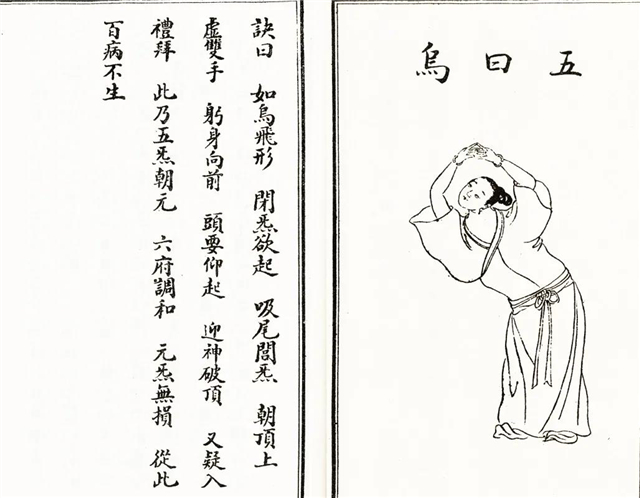 五曰鳥
訣曰 如鳥飛形 閉炁欲起 吸尾閭炁 朝頂上
虛雙手 躬身向前 頭要仰起 迎神破頂 又疑入
禮拜 此乃五炁朝元 六府調和 元炁無損 從此
百病不生